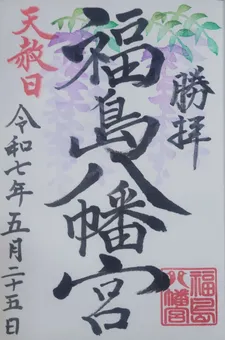 勝拝
福島八幡宮
天赦日
令和七年五月二十五日
福島
八幡宮